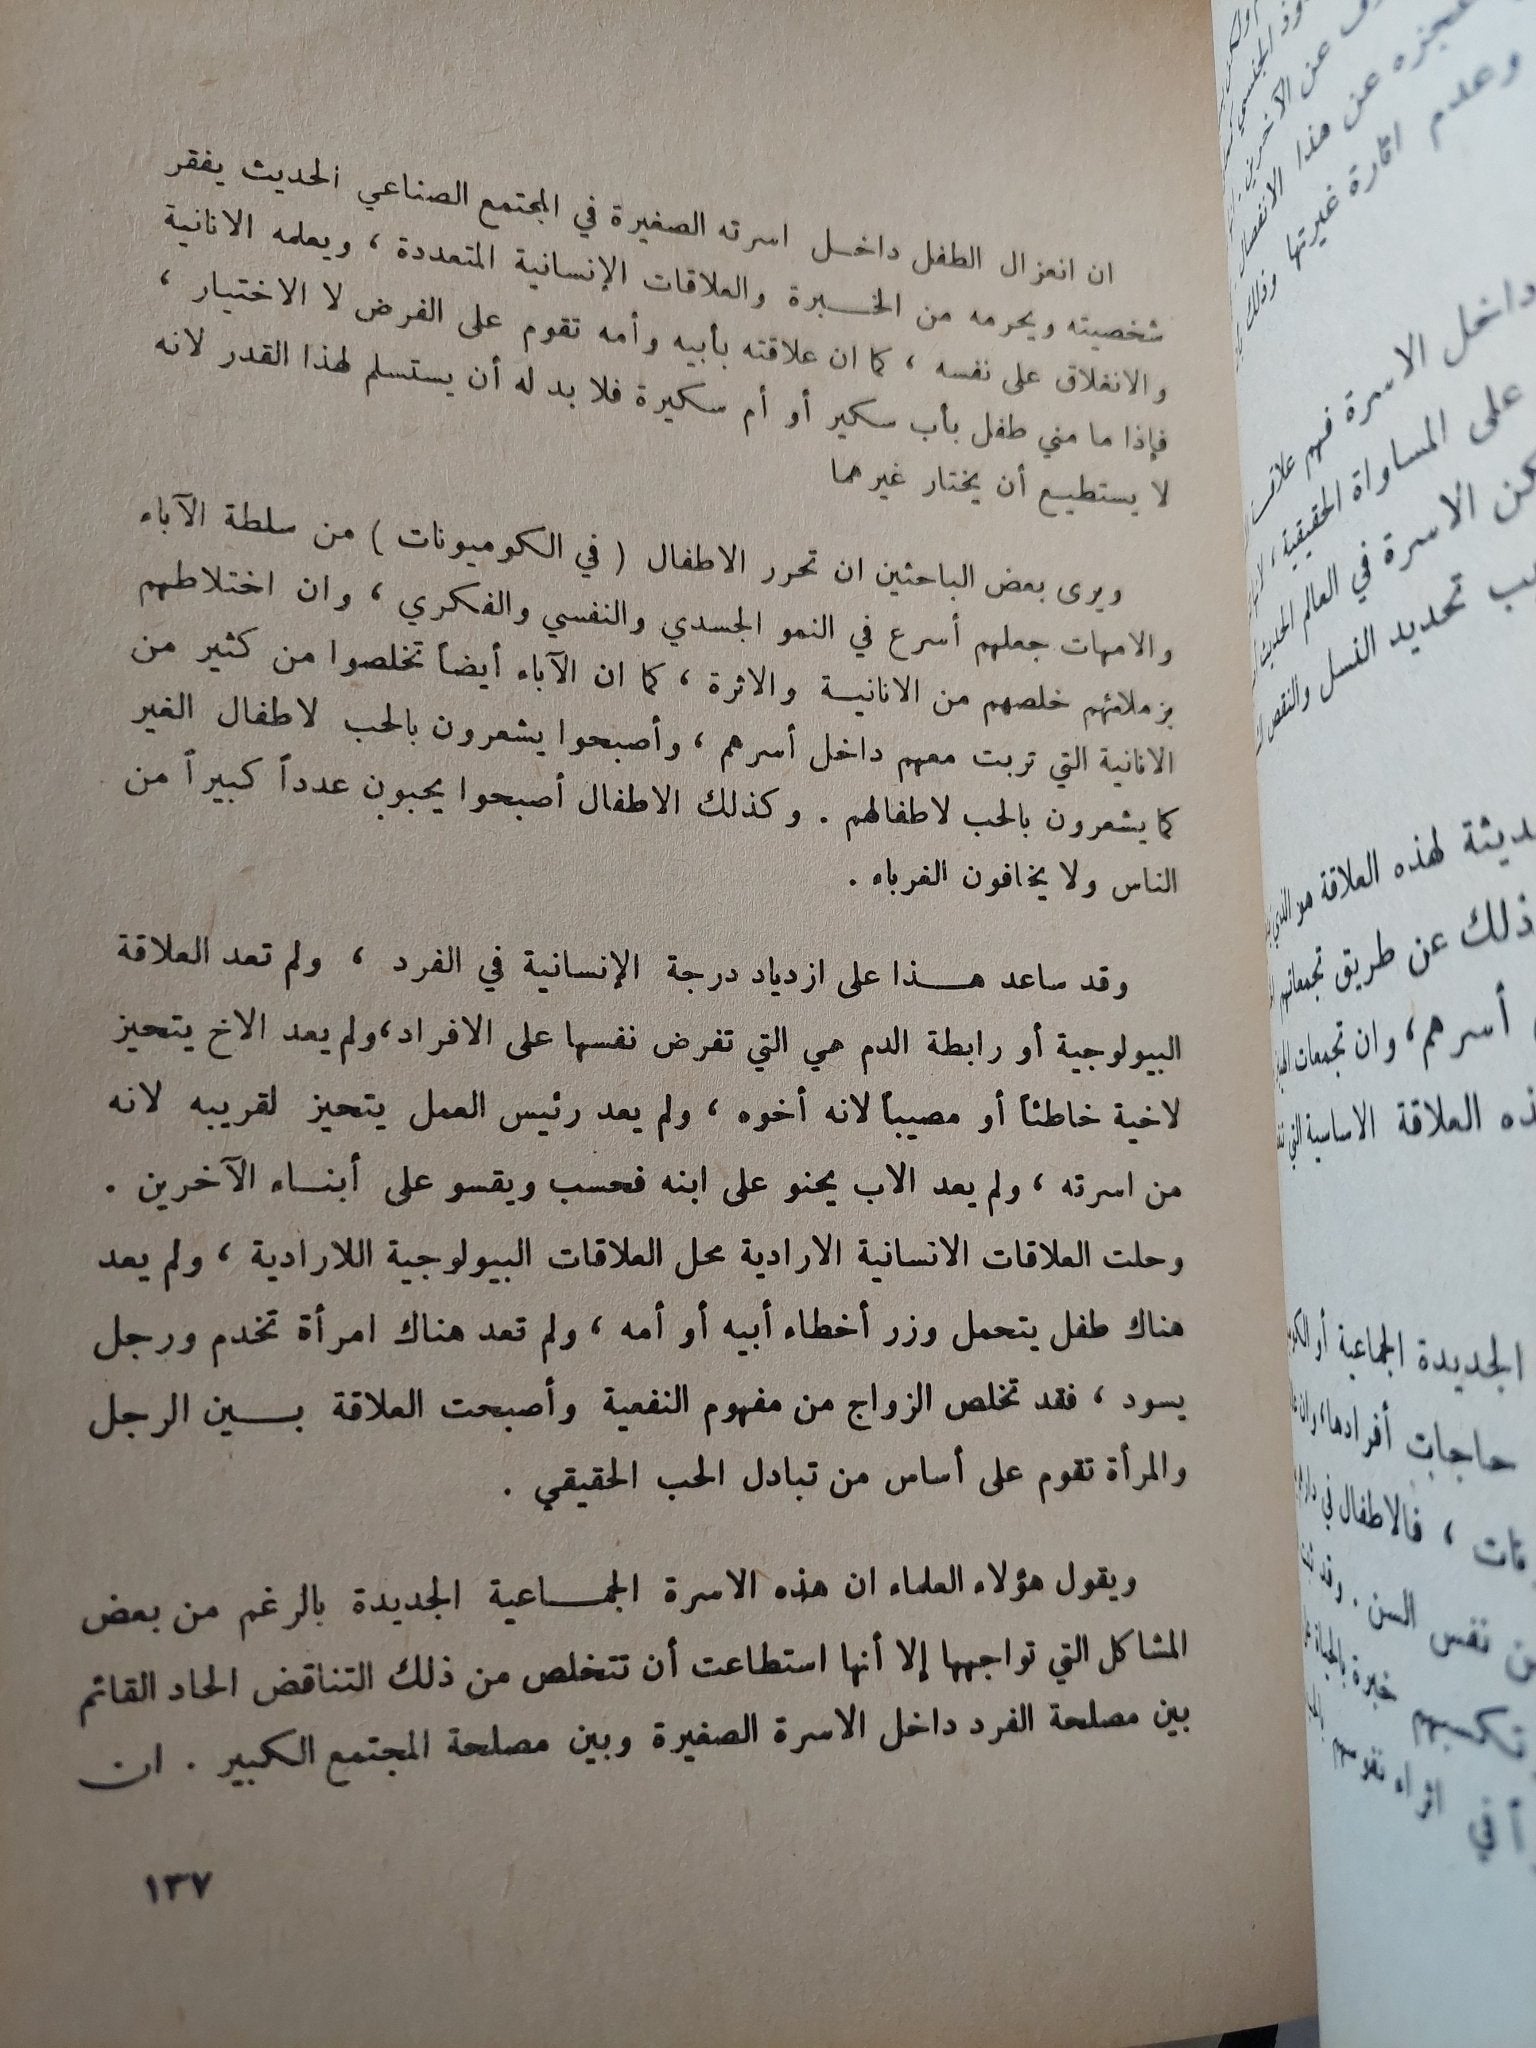 ان انعزال الطفل داخل اسرته الصغيرة في المجتمع الصناعي الحديث يفقر
شخصيته ويحرمه من الخبرة والعلاقات الإنسانية المتعددة ، ويعلمه الانانية
والانغلاق على نفسه ، كما ان علاقته بأبيه وأمه تقوم على الفرض لا الاختيار ،
فإذا ما مني طفل بأب سكير أو أم سكيرة فلا بد له أن يستسلم لهذا القدر لانه
لا يستطيع أن يختار غيرهما
ويرى بعض الباحثين ان تحرر الاطفال ( في الكوميونات ) من سلطة الآباء
والامهات جعلهم أسرع في النمو الجسدي والنفسي والفكري ، وان اختلاطهم
بزملائهم خلصهم من الانانية والاثرة ، كما ان الآباء أيضاً تخلصوا من كثير من
الانانية التي تربت معهم داخل أسرهم ، وأصبحوا يشعرون بالحب لاطفال الغير
كما يشعرون بالحب لاطفالهم . وكذلك الاطفال أصبحوا يحبون عدداً كبيراً من
الناس ولا يخافون الغرباء .
وقد ساعد هذا على ازدياد درجة الإنسانية في الفرد ، ولم تعد العلاقة
البيولوجية أو رابطة الدم هي التي تفرض نفسها على الافراد،ولم يعد الاخ يتحيز
لاخية خاطئاً أو مصيباً لانه أخوه ، ولم يعد رئيس العمل يتحيز لقريبه لانه
من اسرته ، ولم يعد الاب يحنو على ابنه فحسب ويقسو على أبناء الآخرين .
وحلت العلاقات الانسانية الارادية محل العلاقات البيولوجية اللارادية ، ولم يعد
هناك طفل يتحمل وزر أخطاء أبيه أو أمه ، ولم تعد هناك امرأة تخدم ورجل
يسود ، فقد تخلص الزواج من مفهوم النفعية وأصبحت العلاقة بين الرجل
والمرأة تقوم على أساس من تبادل الحب الحقيقي .
ويقول هؤلاء العلماء ان هذه الاسرة الجماعية الجديدة بالرغم من بعض
المشاكل التي تواجهها إلا أنها استطاعت أن تتخلص من ذلك التناقض الحاد القائم
بين مصلحة الفرد داخل الاسرة الصغيرة وبين مصلحة المجتمع الكبير . ان
١٣٧
عن الآخرين
عجزه عن هذا الانفصال
وعدم اثارة غيرتها وذلك
داخل الاسرة فهم
على المساواة الحقيقية ،
الاسرة في العالم الحديث
تحديد النسل والنقص
لهذه العلاقة هو الذي
ذلك عن طريق تجمعاتهم
أسرهم ، وان تجمعات
العلاقة الاساسية التي
الجديدة الجماعية أو
حاجات أفرادها، وان
، فالاطفال في
نفس السن . وقد
خبرة بالحياة
أو في اثراء نفوسهم